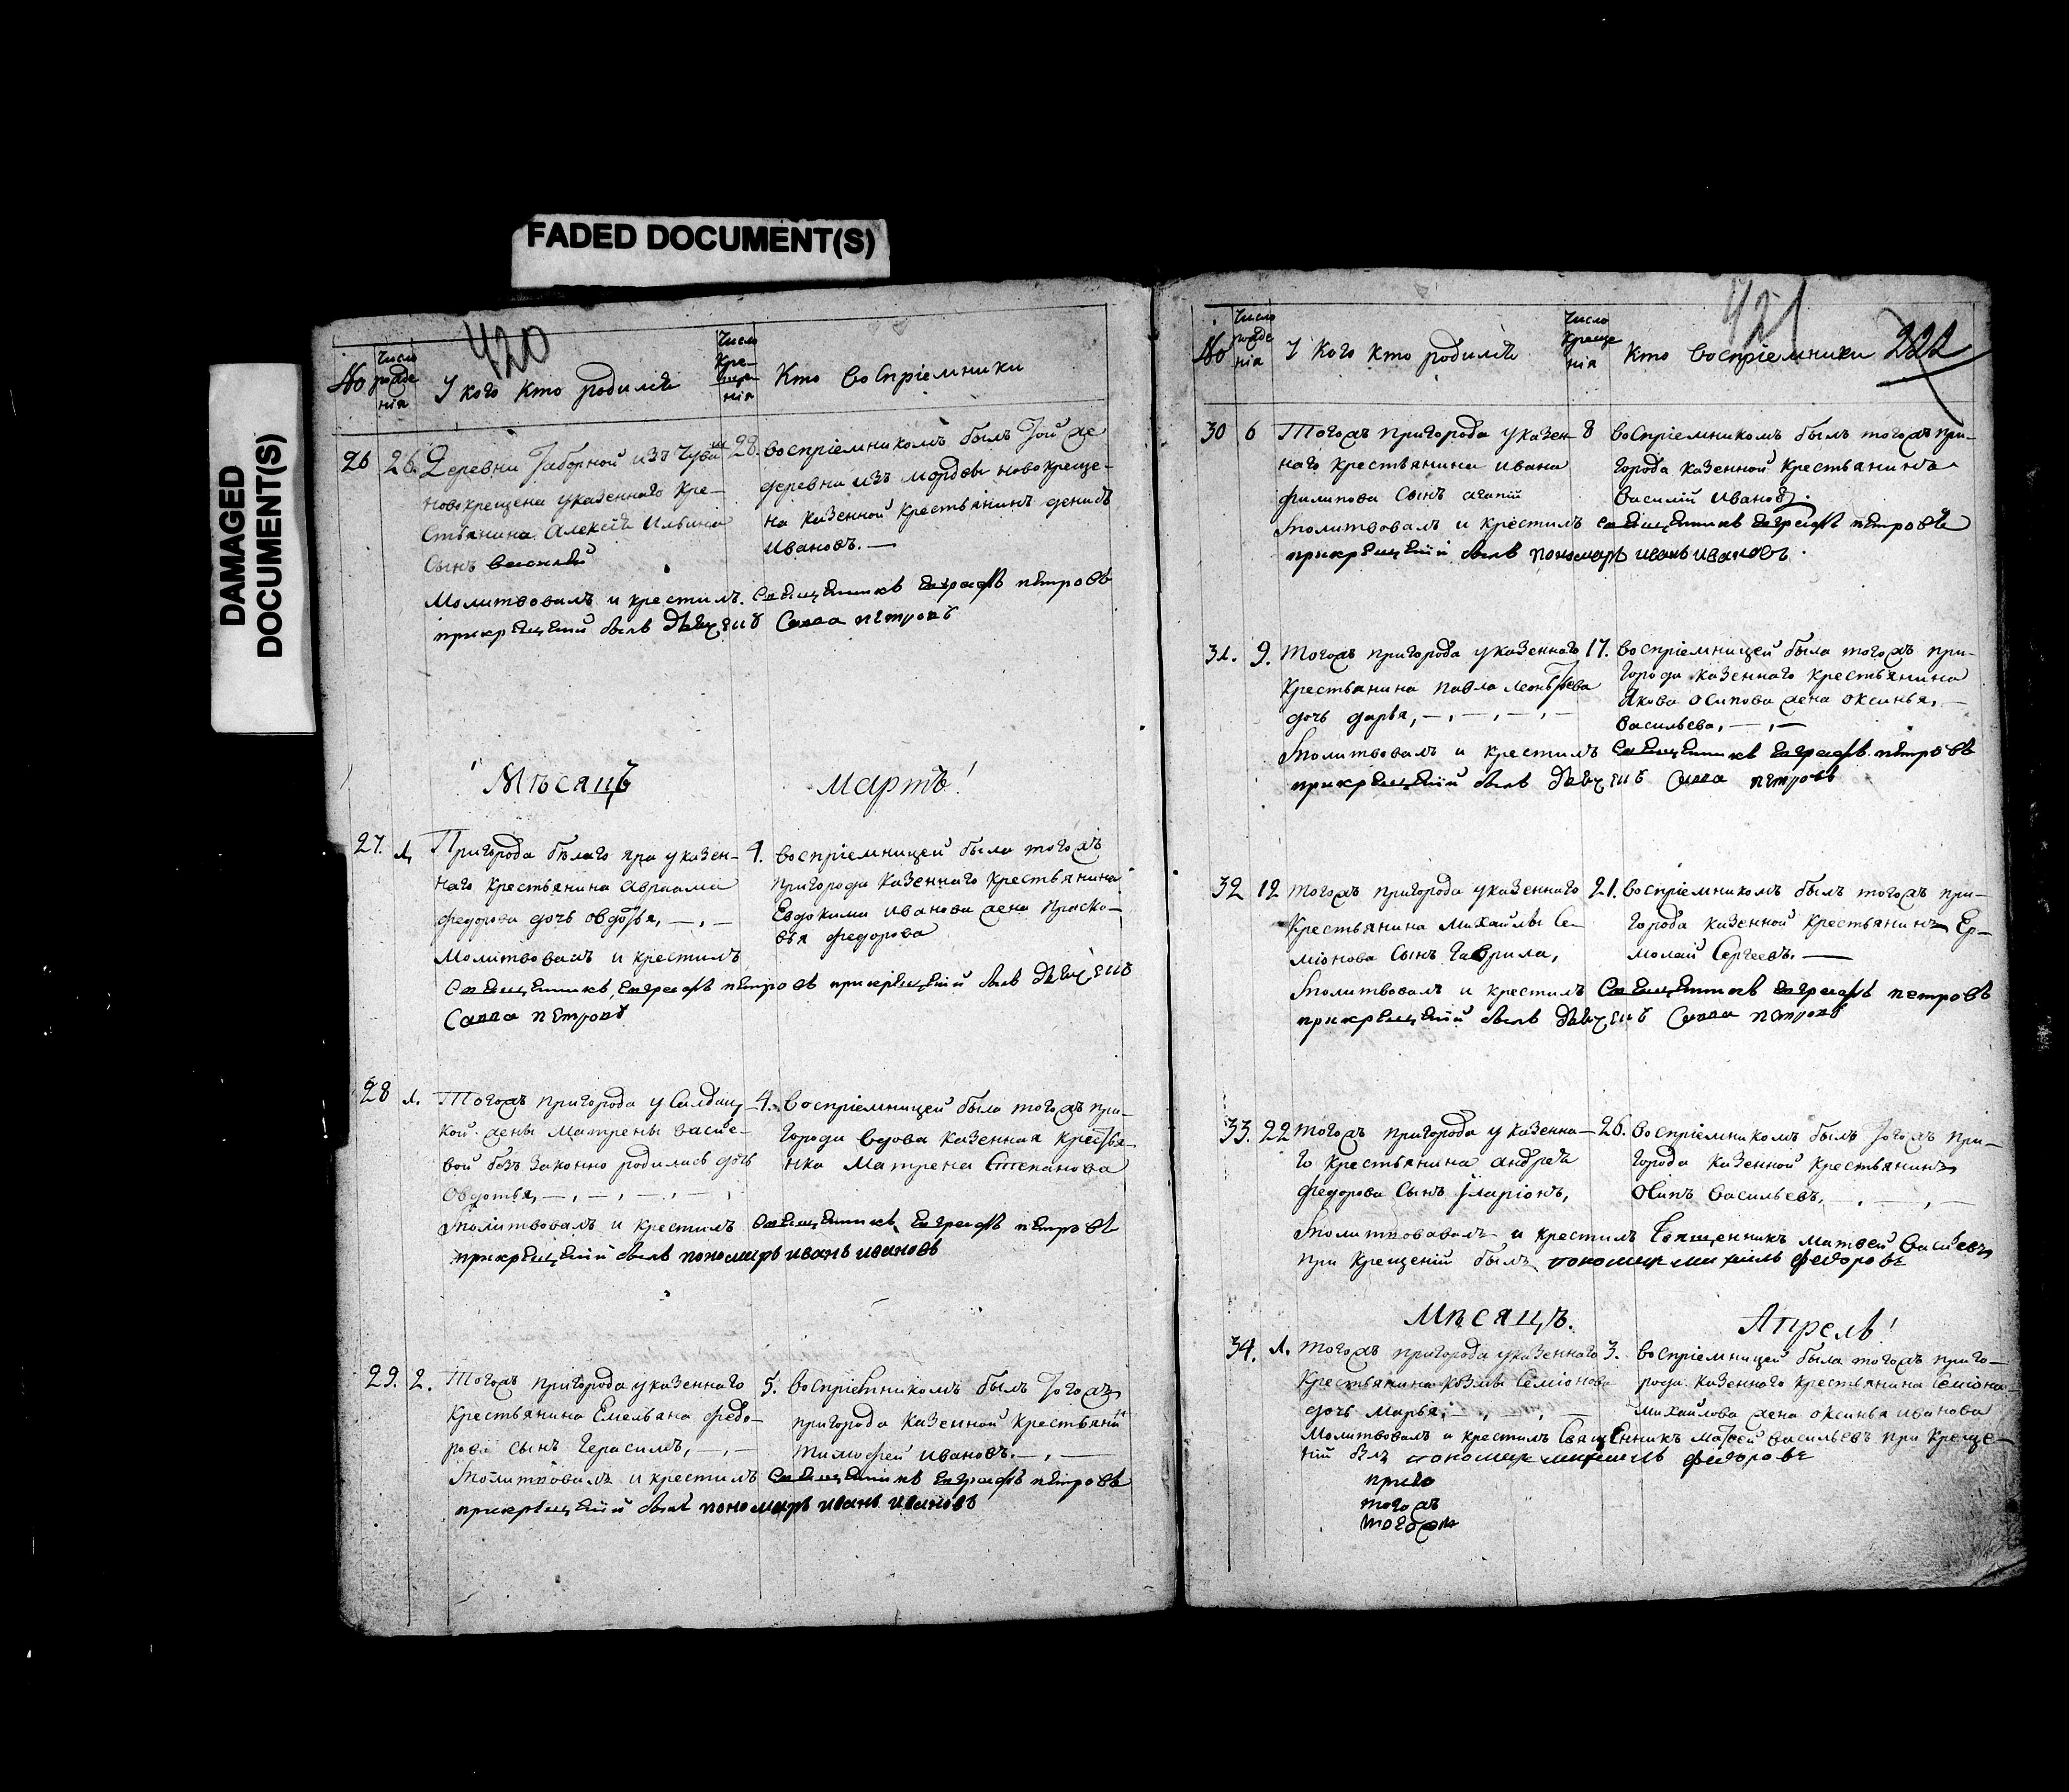 FADED DOCUMENT(S)
DAMAGED
DOCUMENT(S)
420
№
Число рожденія
У кого кто родился
Число крещенія
Кто воспріемники
26 26. Деревни Заборной изъ Чуваш
новокрещена у казеннаго кре-
стьянина Алексѣя Ильина
сынъ василей
28. воспріемникомъ былъ той же
деревни изъ мордвы новокреще-
на казенной крестьянинъ денисъ
Ивановъ. —
Молитвовалъ и крестилъ. Священникъ Евграфъ петровъ
прикрещеніи былъ дьячекъ Савва петровъ
Мѣсяцъ Мартъ!
27. 1. Пригорода бѣлаго яра у казен-
наго крестьянина Авраама
федорова дочь овдотья, —, —
4. воспріемницей была тогожъ
пригорода казеннаго крестьянина
Евдокима иванова жена Праско-
вья федорова
Молитвовалъ и крестилъ
Священникъ, Евграфъ петровъ прикрещеніи былъ дьячекъ
Савва петровъ
28 1. Тогожъ пригорода у Салдац-
кой жены Матрены васие-
вой безъ законно родилась дочь
Овдотья, —, —, —, —,
4. воспріемницей была тогожъ при-
города вдова казенная крестья-
нка Матрена Степанова
Молитвовалъ и крестилъ Священникъ, Евграфъ петровъ
прикрещеніи былъ пономарь иванъ ивановъ
29. 2. Тогожъ пригорода у казеннаго
крестьянина Емельяна федо-
рова сынъ Герасимъ, —, —
5. воспріемникомъ былъ тогожъ
пригорода казенной крестьянин
тимофей ивановъ. —, —
Молитвовалъ и крестилъ Священникъ Евграфъ петровъ
прикрещеніи былъ пономарь иванъ ивановъ
421
222
№
Число рожденія
У кого кто родился
Число крещенія
Кто воспріемники
30 6 Тогожъ пригорода у казен-
наго крестьянина ивана
филипова сынъ агапій
8 воспріемникомъ былъ тогожъ при-
города казенной крестьянинъ
василій ивановъ.
Молитвовалъ и крестилъ священникъ Евграфъ петровъ
прикрещеніи былъ пономарь иванъ ивановъ.
31. 9. Тогожъ пригорода у казеннаго
крестьянина павла леонтьева
дочь дарья, —, —, —, —
17. воспріемницей была тогожъ при-
города казеннаго крестьянина
Якова осипова жена оксинья, —
васильева, —, —
Молитвовалъ и крестилъ Священникъ Евграфъ петровъ
прикрещеніи былъ дьячекъ Савва петровъ
32 12 тогожъ пригорода у казеннаго
крестьянина михайлы Се-
міонова сынъ гаврила,
21. воспріемникомъ былъ тогожъ при-
города казенной крестьянинъ Ер-
молай Сергеевъ. —
Молитвовалъ и крестилъ Священникъ Евграфъ петровъ
прикрещеніи былъ дьячекъ Савва петровъ
33. 22 тогожъ пригорода у казенна-
го крестьянина андрея
федорова сынъ іларіонъ,
26. воспріемникомъ былъ тогожъ при-
города казенной крестьянинъ
Осипъ васильевъ, —, —, —
Молитвовалъ и крестилъ Священникъ матвей васиевъ
при крещеніи былъ пономарь михаилъ федоровъ
Мѣсяцъ. Апрель!
34. 1. тогожъ пригорода у казеннаго
крестьянина козмы Семіонова
дочь марья, —, —, —
3. воспріемницей была тогожъ приго-
рода казеннаго крестьянина Семіона
михайлова жена оксинья иванова
Молитвовалъ и крестилъ Священникъ матвей васильевъ при креще-
ніи былъ пономарь михаилъ федоровъ
приго
тогожъ
тогожъ